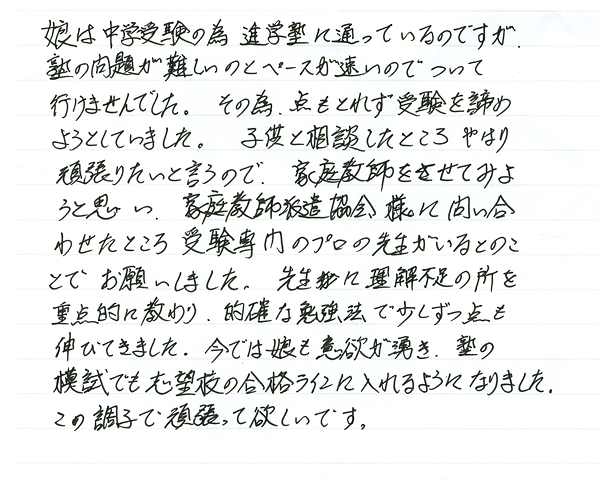 娘は中学受験の為 進学塾に通っているのですが、
塾の問題が難しいのとペースが速いので ついて
行けませんでした。 その為、点もとれず受験を諦め
ようとしていました。 子供と相談したところ やはり
頑張りたいと言うので、 家庭教師をさせてみよ
うと思い、家庭教師派遣協会様に問い合
わせたところ 受験専門のプロの先生がいるとのこ
とで お願いしました。 先生に理解不足の所を
重点的に教わり、的確な勉強法で少しずつ点も
伸びてきました。今では娘も意欲が湧き、塾の
模試でも志望校の合格ラインに入れるようになりました。
この調子で頑張って欲しいです。